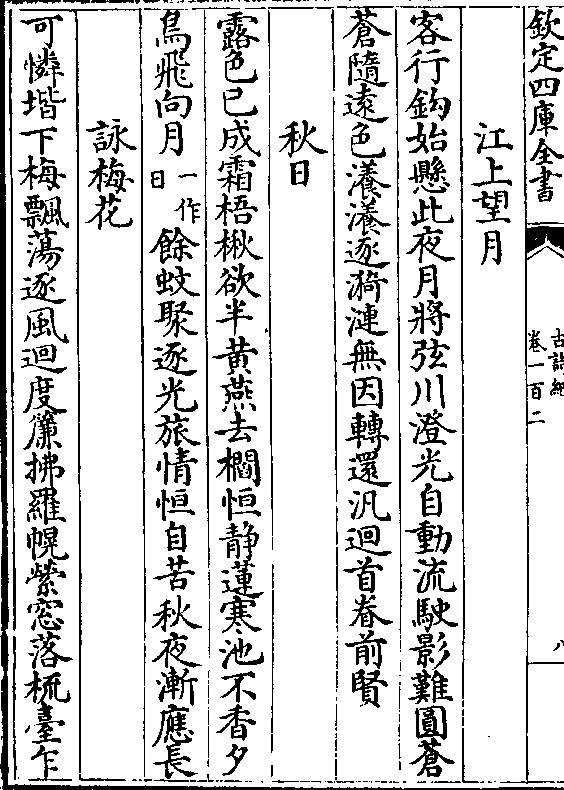 欽定四庫全書
古詩紀
卷一百二
八
江上望月
客行鈎始懸此夜月將弦川澄光自動流駛影難圓蒼
蒼隨遠色瀁瀁逐漪漣無因轉還汎迴首眷前賢
秋日
露色已成霜梧楸欲半黃燕去櫩恒静蓮寒池不香夕
鳥飛向月一作日餘蚊聚逐光旅情恒自苦秋夜漸應長
詠梅花
可憐堦下梅飄蕩逐風迴度簾拂羅幌縈窓落梳臺乍